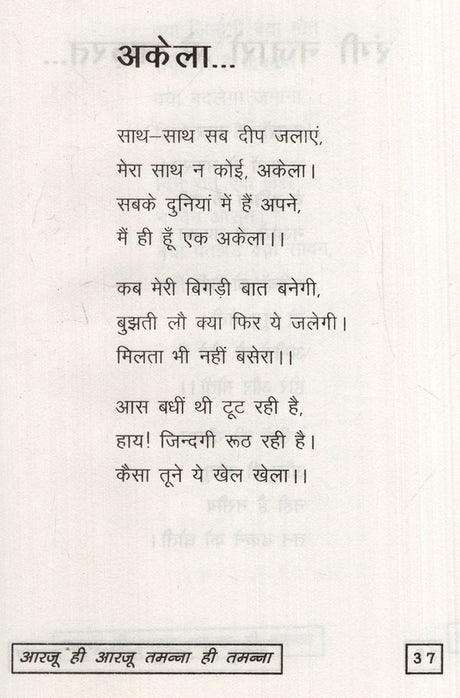 अकेला...
साथ–साथ सब दीप जलाएं,
मेरा साथ न कोई, अकेला।
सबके दुनियां में हैं अपने,
मैं ही हूँ एक अकेला।।
कब मेरी बिगड़ी बात बनेगी,
बुझती लौ क्या फिर ये जलेगी।
मिलता भी नहीं बसेरा।।
आस बधीं थी टूट रही है,
हाय! जिन्दगी रूठ रही है।
कैसा तूने ये खेल खेला।।
आरजू ही आरजू तमन्ना ही तमन्ना
37